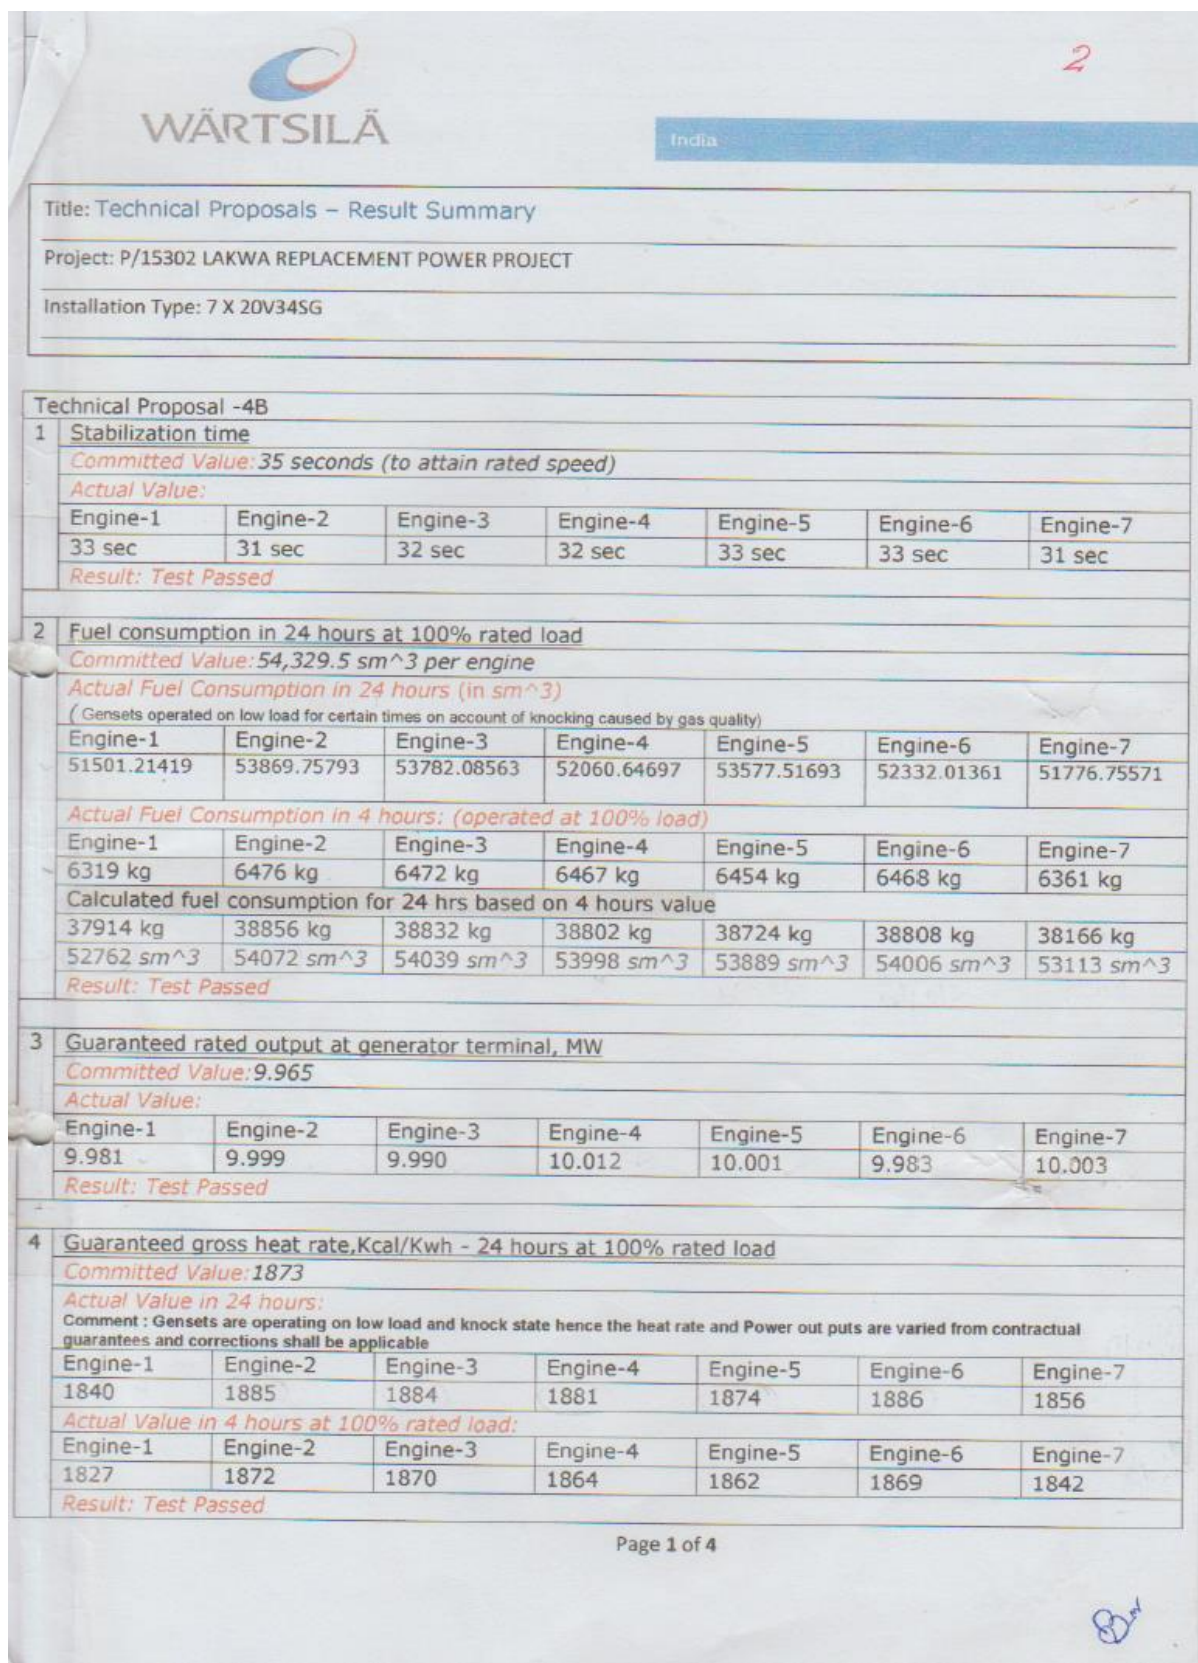 2
WÄRTSILÄ
India
Title: Technical Proposals – Result Summary
Project: P/15302 LAKWA REPLACEMENT POWER PROJECT
Installation Type: 7 X 20V34SG
Technical Proposal -4B
1 Stabilization time
Committed Value: 35 seconds (to attain rated speed)
Actual Value:
Engine-1 Engine-2 Engine-3 Engine-4 Engine-5 Engine-6 Engine-7
33 sec 31 sec 32 sec 32 sec 33 sec 33 sec 31 sec
Result: Test Passed
2 Fuel consumption in 24 hours at 100% rated load
Committed Value: 54,329.5 sm^3 per engine
Actual Fuel Consumption in 24 hours (in sm^3)
( Gensets operated on low load for certain times on account of knocking caused by gas quality)
Engine-1 Engine-2 Engine-3 Engine-4 Engine-5 Engine-6 Engine-7
51501.21419 53869.75793 53782.08563 52060.64697 53577.51693 52332.01361 51776.75571
Actual Fuel Consumption in 4 hours: (operated at 100% load)
Engine-1 Engine-2 Engine-3 Engine-4 Engine-5 Engine-6 Engine-7
6319 kg 6476 kg 6472 kg 6467 kg 6454 kg 6468 kg 6361 kg
Calculated fuel consumption for 24 hrs based on 4 hours value
37914 kg 38856 kg 38832 kg 38802 kg 38724 kg 38808 kg 38166 kg
52762 sm^3 54072 sm^3 54039 sm^3 53998 sm^3 53889 sm^3 54006 sm^3 53113 sm^3
Result: Test Passed
3 Guaranteed rated output at generator terminal, MW
Committed Value: 9.965
Actual Value:
Engine-1 Engine-2 Engine-3 Engine-4 Engine-5 Engine-6 Engine-7
9.981 9.999 9.990 10.012 10.001 9.983 10.003
Result: Test Passed
4 Guaranteed gross heat rate,Kcal/Kwh - 24 hours at 100% rated load
Committed Value: 1873
Actual Value in 24 hours:
Comment : Gensets are operating on low load and knock state hence the heat rate and Power out puts are varied from contractual
guarantees and corrections shall be applicable
Engine-1 Engine-2 Engine-3 Engine-4 Engine-5 Engine-6 Engine-7
1840 1885 1884 1881 1874 1886 1856
Actual Value in 4 hours at 100% rated load:
Engine-1 Engine-2 Engine-3 Engine-4 Engine-5 Engine-6 Engine-7
1827 1872 1870 1864 1862 1869 1842
Result: Test Passed
Page 1 of 4